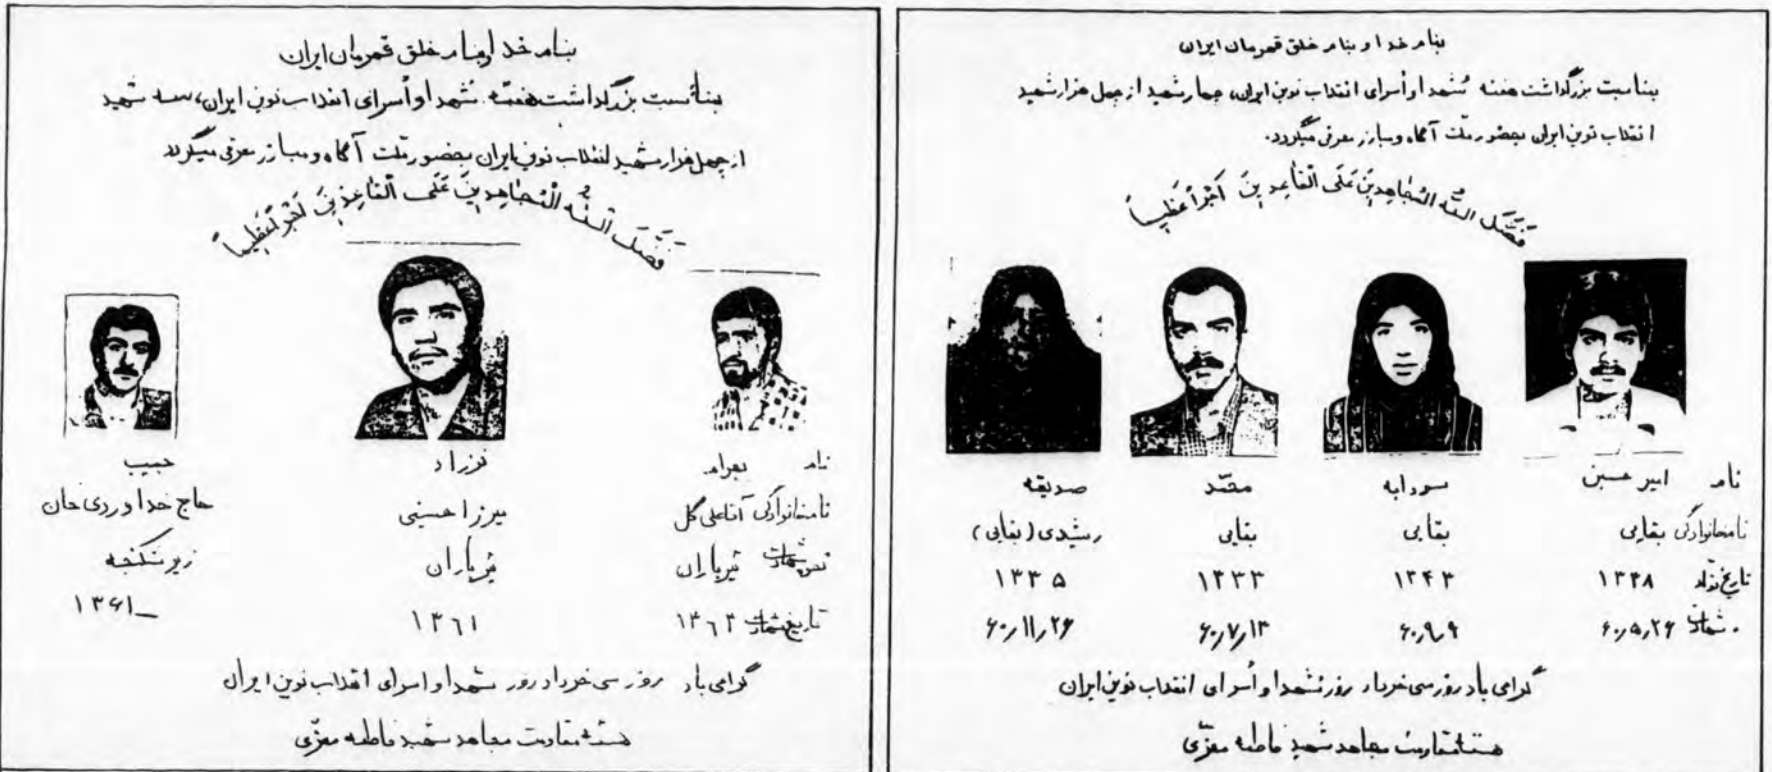 بنام خدا و بنام خلق قهرمان ایران
بمناسبت بزرگداشت هفتهٔ شهدا و اُسرای انقلاب نوین ایران، چهار شهید از چهل هزار شهید
انقلاب نوین ایران بحضور ملت آگاه و مبارز معرفی میگردد.
فَضَّلَ اللّهُ المُجاهِدینَ عَلَی القاعِدینَ اَجْراً عَظیماً
نام امیر حسین سودابه محمّد صدیقه
نامخانوادگی بقایی بقایی بقایی رشیدی (بقایی)
تاریخ تولد ۱۳۳۸ ۱۳۴۳ ۱۳۳۳ ۱۳۳۵
شهادت ۶۰٫۵٫۲۶ ۶۰٫۹٫۹ ۶۰٫۷٫۱۳ ۶۰٫۱۱٫۲۶
گرامی باد روز سی خرداد روز شهدا و اُسرای انقلاب نوین ایران
هسته مقاومت مجاهد شهید فاطمه معزّی
بنام خدا و بنام خلق قهرمان ایران
بمناسبت بزرگداشت هفتهٔ شهدا و اُسرای انقلاب نوین ایران، سه شهید
از چهل هزار شهید انقلاب نوین ایران بحضور ملت آگاه و مبارز معرفی میگردد
فَضَّلَ اللّهُ المُجاهِدینَ عَلَی القاعِدینَ اَجْراً عَظیماً
نام بهرام فرزاد حبیب
نامخانوادگی آقاعلی گل میرزا حسینی حاج خداوردی خان
نحوه شهادت تیرباران تیرباران زیر شکنجه
تاریخ شهادت ۱۳۶۳ ۱۳۶۱ ۱۳۶۱
گرامی باد روز سی خرداد روز شهدا و اسرای انقلاب نوین ایران
هسته مقاومت مجاهد شهید فاطمه معزّی